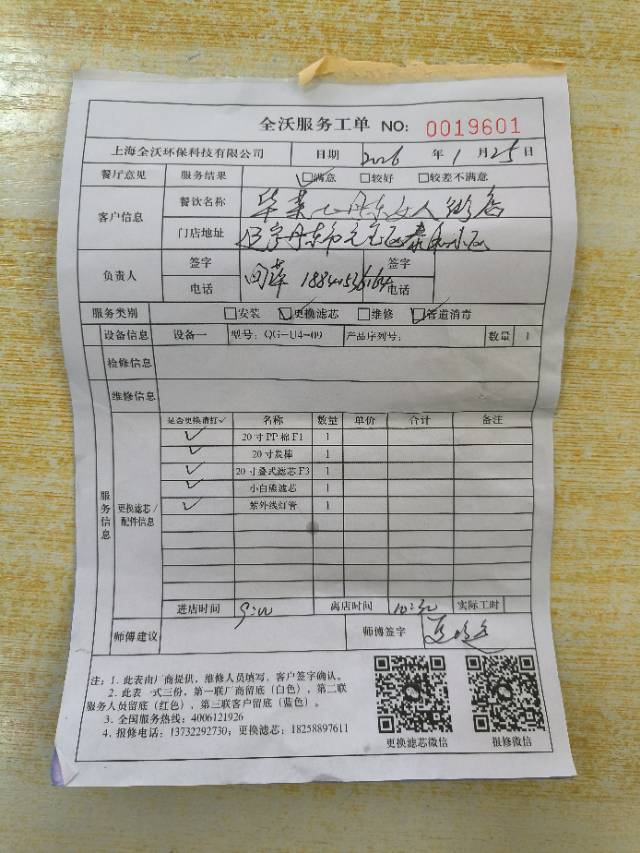 全沃服务工单 NO: 0019601
上海全沃环保科技有限公司 日期 2026 年 1 月 25 日
餐厅意见 服务结果 ☑满意 □较好 □较差不满意
客户信息 餐饮名称 丹东女人街店
门店地址 辽宁丹东市元宝区泰和小区
负责人 签字 签字
电话 电话
服务类别 □安装 ☑更换滤芯 □维修 ☑管道消毒
设备信息 设备一 型号: QG-U4-09 产品序列号: 数量 1
检修信息
维修信息
服务信息
更换滤芯/配件信息
是否更换请打✓ 名称 数量 单价 合计 备注
✓ 20寸PP棉F1 1
✓ 20寸炭棒 1
✓ 20寸叠式滤芯F3 1
✓ 小白熊滤芯 1
✓ 紫外线灯管 1
进店时间 9:00 离店时间 10:30 实际工时
师傅建议 师傅签字
注: 1. 此表由厂商提供, 维修人员填写, 客户签字确认。
2. 此表一式三份, 第一联厂商留底 (白色), 第二联
服务人员留底 (红色), 第三联客户留底 (蓝色)。
3. 全国服务热线: 4006121926
4. 报修电话: 13732292730; 更换滤芯: 18258897611
更换滤芯微信 报修微信